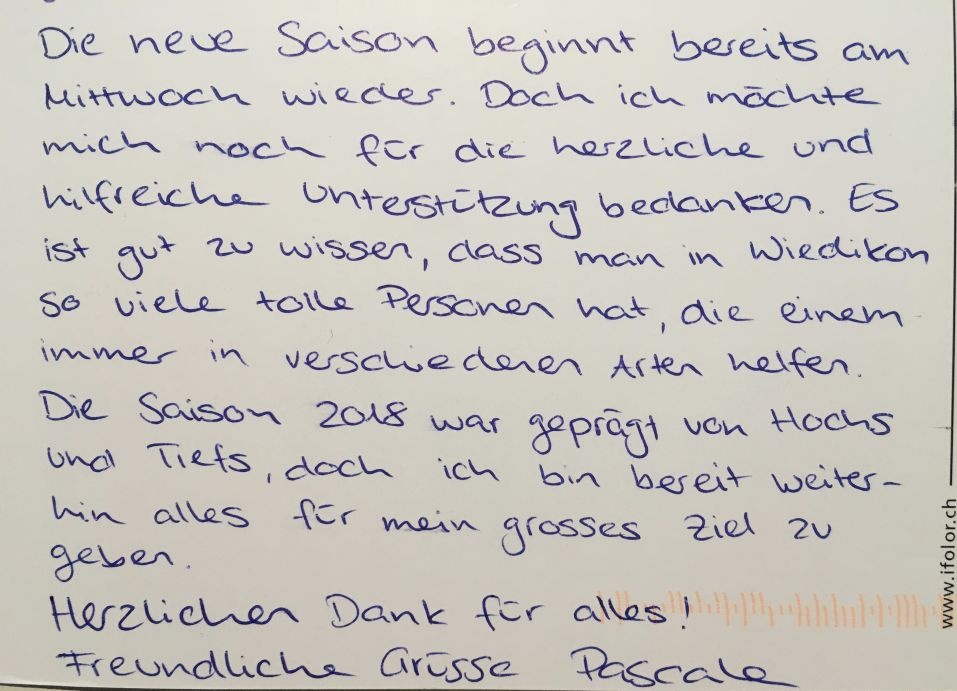 Die neue Saison beginnt bereits am
Mittwoch wieder. Doch ich möchte
mich noch für die herzliche und
hilfreiche Unterstützung bedanken. Es
ist gut zu wissen, dass man in Wiedikon
so viele tolle Personen hat, die einem
immer in verschiedenen Arten helfen.
Die Saison 2018 war geprägt von Hochs
und Tiefs, doch ich bin bereit weiter-
hin alles für mein grosses Ziel zu
geben.
Herzlichen Dank für alles!
Freundliche Grüsse Pascale
www.ifolor.ch